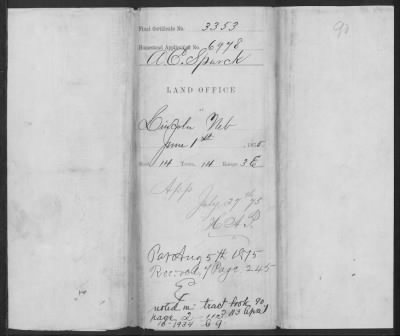 90
Final Certificate No. 3353
Homestead Application No. 6978
A. E. Spurck
LAND OFFICE
Lincoln Neb
June 1st, 1875
Sect. 14 Town. 14 Range 3 E
App
July 27th 75
H. A. P.
Pat Aug 5th 1875
Record 7 Page 245
noted in tract book 90
page 2
10-1934